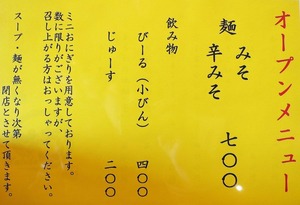 オープンメニュー
麺
みそ
辛みそ 七〇〇
飲み物
びーる（小びん） 四〇〇
じゅーす 二〇〇
ミニおにぎりを用意しております。
数に限りがございますが、
召し上がる方はおっしゃってください。
スープ・麺が無くなり次第
閉店とさせて頂きます。